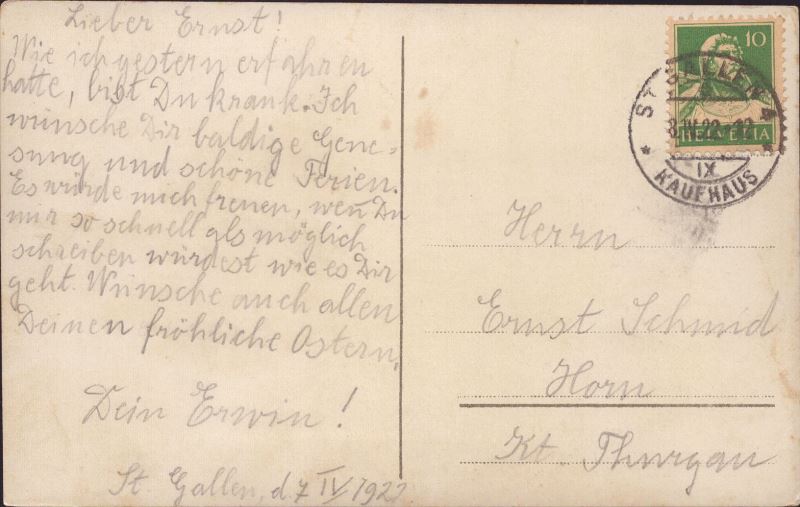 Lieber Ernst!
Wie ich gestern erfahren
hatte, bist Du krank. Ich
wünsche Dir baldige Gene-
sung und schöne Ferien.
Es würde mich freuen, wen̄ Du
mir so schnell als möglich
schreiben würdest wie es Dir
geht. Wünsche auch allen
Deinen fröhliche Ostern.
Dein Erwin!
St. Gallen, d. 7 IV 1922
10
HELVETIA
ST. GALLEN 4
8.IV.22.-12
IX
* KAUFHAUS *
Herrn
Ernst Schmid
Horn
Kt. Thurgau